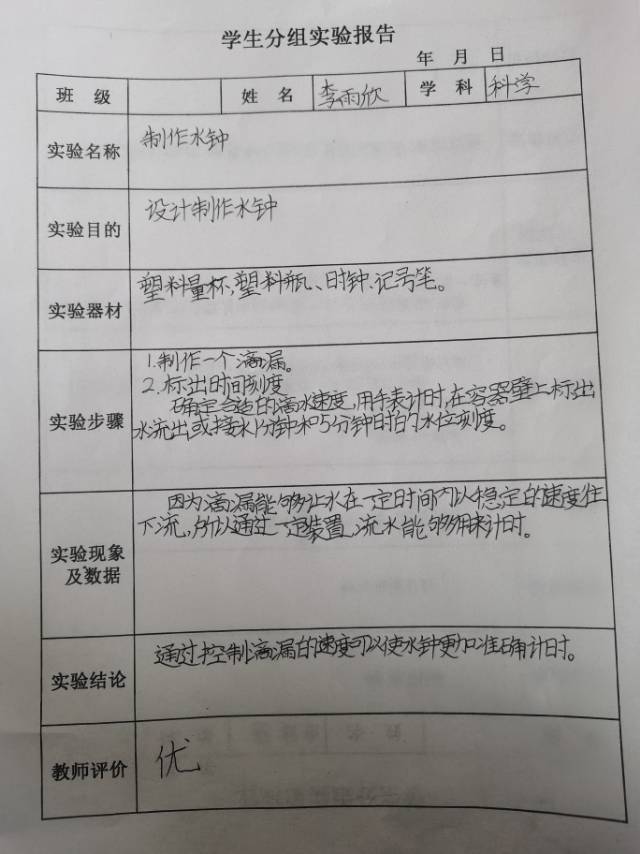 学生分组实验报告
年 月 日
班 级 姓 名 李雨欣 学 科 科学
实验名称 制作水钟
实验目的 设计制作水钟
实验器材 塑料量杯,塑料瓶、时钟、记号笔。
实验步骤
1.制作一个滴漏。
2.标出时间刻度
确定合适的滴水速度,用手表计时,在容器壁上标出
水流出或接水1分钟和5分钟时的水位刻度。
实验现象
及数据
因为滴漏能够让水在一定时间内以稳定的速度往
下流,所以通过一定装置,流水能够用来计时。
实验结论 通过控制滴漏的速度可以使水钟更加准确计时。
教师评价 优